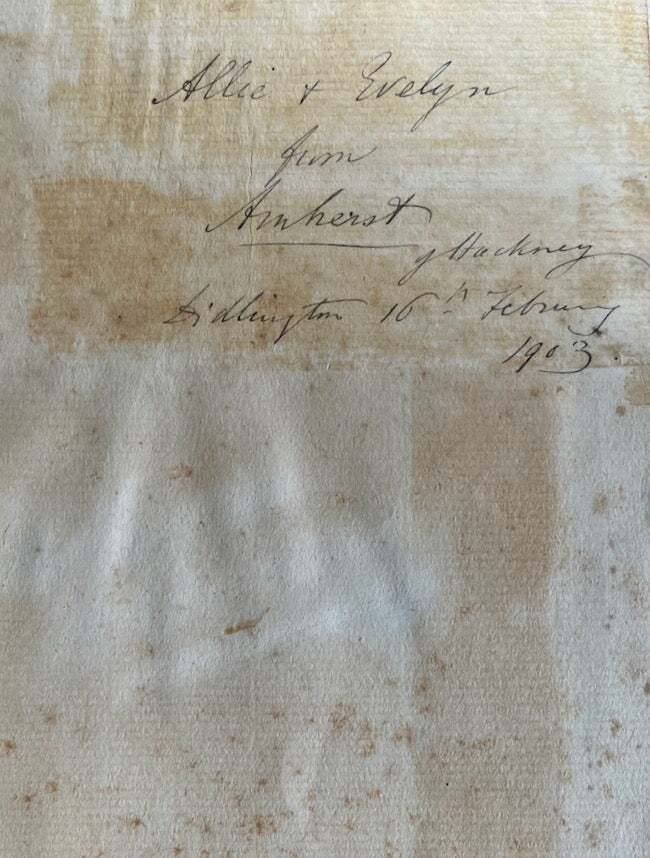 Allie & Evelyn
from
Amherst
of Hackney
Didlington 16th February
1903.